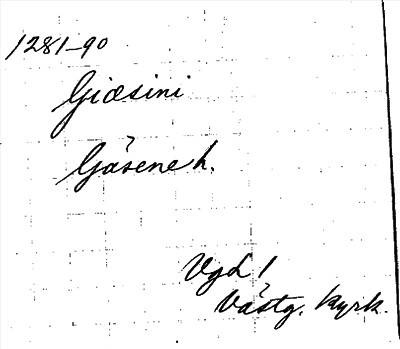 1281-90
Giæsini
Gäsene h.
Vgd 1
Västg. kyrk.